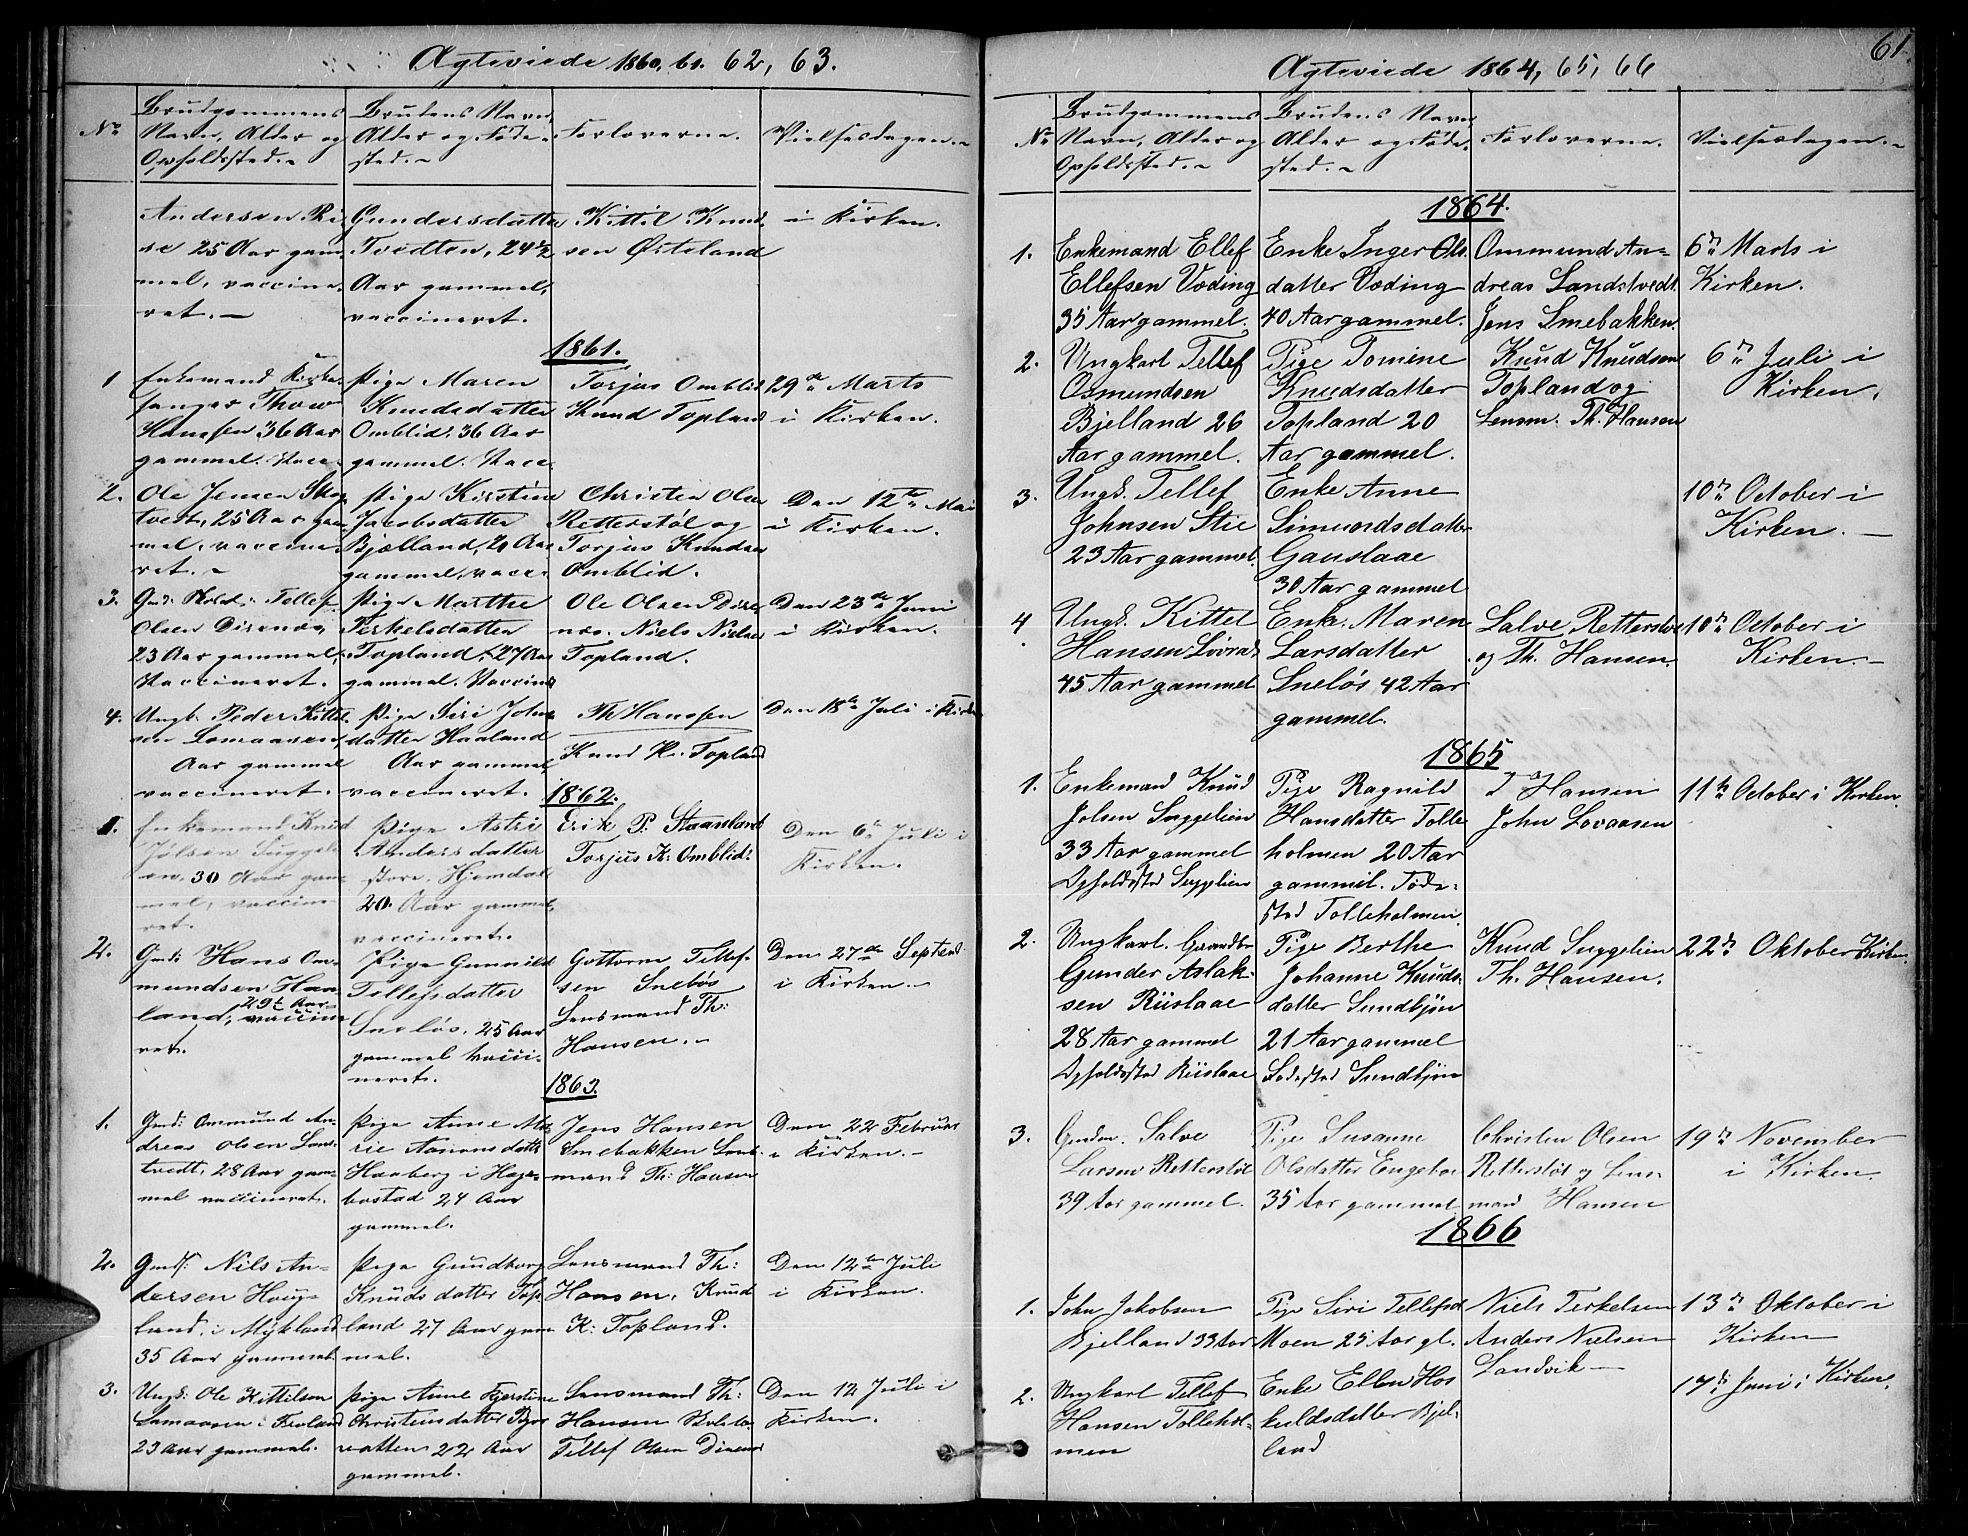 Ægteviede 1860, 61. 62, 63.
No
Brudgommens Navn, Alder og Opholdssted.
Brudens Navn Alder og Fødested.
Forloverne.
Vielsesdagen.
Andersen Ri
se 25 Aar gam
mel, vaccine
ret.
Gundersdatter
Tvedten, 24 1/2
Aar gammel,
vaccineret.
Kittil Knud
sen Østeland
i Kirken.
1861.
1
Enkemand Kirke
sanger Thow
Hanssen 36 Aar
gammel. Vacc.
Pige Maren
Knudsdatter
Omblid. 36 Aar
gammel. Vacc.
Torjus Omblid
Knud Topland
29de Marts
i Kirken.
2.
Ole Jensen
tvedt, 25 Aar gam
mel, vaccine
ret.
Pige Kirstine
Jacobsdatter
Bjælland, 20 Aar
gammel, vacc.
Christen Olsen
Retterstøl og
Torjus Knudsen
Omblid.
Den 12te Mai
i Kirken.
3.
Gmd: Tellef
Olsen Direnes
23 Aar gammel,
Vaccineret.
Pige Marthe
Terkelsdatter
Topland, 27 Aar
gammel. Vaccine
Ole Olsen Dire
nes. Niels Nielsen
Topland.
Den 23de Juni
i Kirken.
4.
Ungk. Peder Kittel
sen Lomaasen,
Aar gammel
vaccineret.
Pige Siri John
datter Haaland
Aar gammel,
vaccineret.
Th Hanssen
Knud K. Topland
Den 18de Juli i Kirken
1862.
1.
Enkemand Knud
Jølsen Suggeli
en, 30 Aar gam
mel, vaccine
ret.
Pige Astri
Andersdatter
store Hjemdal
20. Aar gammel,
vaccineret.
Erik P. Staansland
Torjus K: Omblid.
Den 6te Juli i
Kirken.
2.
Gmd: Hans Om
mundsen Haa
land, 29t Aar vaccine
ret.
Pige Gunnild
Tellefsdatter
Sneløs, 25 Aar
gammel vacci
neret.
Guttorm Tellef
sen Sneløs
Lensmand Th:
Hansen.
Den 27de Septem
i Kirken.
1863.
1.
Gmd: Ommund An
dreas Olsen Lands
tvedt, 28 Aar gam
mel vaccineret.
Pige Anne Ma
rie Aanonsdatter
Haaberg i Hege
bostad 24 Aar
gammel.
Jens Hansen
Smebakken Lens
mand Th: Hansen
Den 22 Februar
i Kirken.
2.
Gmd: Nils An
dersen Houg
land, i Mykland
35 Aar gammel.
Pige Gundborg
Knudsdatter Top
land 27 Aar gam
mel.
Lensmand Th:
Hansen. Knud
K: Topland.
Den 12te Juli
i Kirken.
3.
Ungk: Ole Kittilsen
Lamaasen i
23 Aar gammel.
Pige Anne Kjerstine
Christensdatter
vatten 22 Aar
gammel.
Lensmand Th:
Hansen
Tellef Olsen Direnes
Den 12 Juli i
Kirken.
Ægteviede 1864, 65, 66
61.
No
Brudgommens Navn, Alder og Opholdssted.
Brudens Navn Alder og Fødested.
Forloverne.
Vielsesdagen.
1864.
1.
Enkemand Ellef
Ellefsen Væding
35 Aar gammel.
Enke Inger Ols
datter Væding
40 Aar gammel.
Ommund An
dreas Landstvedt
Jens Smebakken.
6te Marts i
Kirken.
2.
Ungkarl Tellef
Osmundsen
Bjelland 26
Aar gammel.
Pige Tomine
Knudsdatter
Topland 20
Aar gammel.
Knud Knudsen
Topland og
Lensm. Th. Hansen
6te Juli i
Kirken.
3.
Ungk. Tellef
Johnsen Stie
23 Aar gammel.
Enke Anne
Simundsdatter
Gauslaae
30 Aar gammel
10de October i
Kirken.
4
Ungk. Kittel
Hansen Løvra
45 Aar gammel
Enk. Maren
Larsdatter
Sneløs 42 Aar
gammel.
Salve Retterstøl
og Th. Hansen.
10de October i
Kirken.
1865
1.
Enkemand Knud
Jolsen Suggelien
33 Aar gammel
Opholdssted Suggelien
Pige Ragnild
Hansdatter Tolle
holmen 20 Aar
gammel. Føde
sted Tolleholmen
T Hansen
John Lovaasen
11te October i Kirken.
2.
Ungkarl. Gaardbr
Gunder Aslak
sen Riislaae
28 Aar gammel
Opholdssted Riislaae
Pige Berthe
Johanne Knuds
datter Sundbjøn
21 Aar gammel
Fødested Sundbjøn
Knud Suggelien
Th. Hansen.
22de Oktober Kirken.
3.
Gmd. Salve
Larsen Retterstøl
39 Aar gammel.
Pige Susanne
Olsdatter Engebo
35 Aar gammel
Christen Olsen
Retterstøl og Lens
mand Hansen
19de November
i Kirken.
1866
1.
John Jakobsen
Bjelland 33 Aar
Pige Siri Tellefsd
Moen 25 Aar gl.
Niels Terkelsen
Anders Nielsen
Landvik
13de Oktober i
Kirken
2.
Ungkarl Tellef
Hansen Tollehol
men
Enke Ellen Hos
kuldsdatter Bjel
land
17de Juni i Kirken.